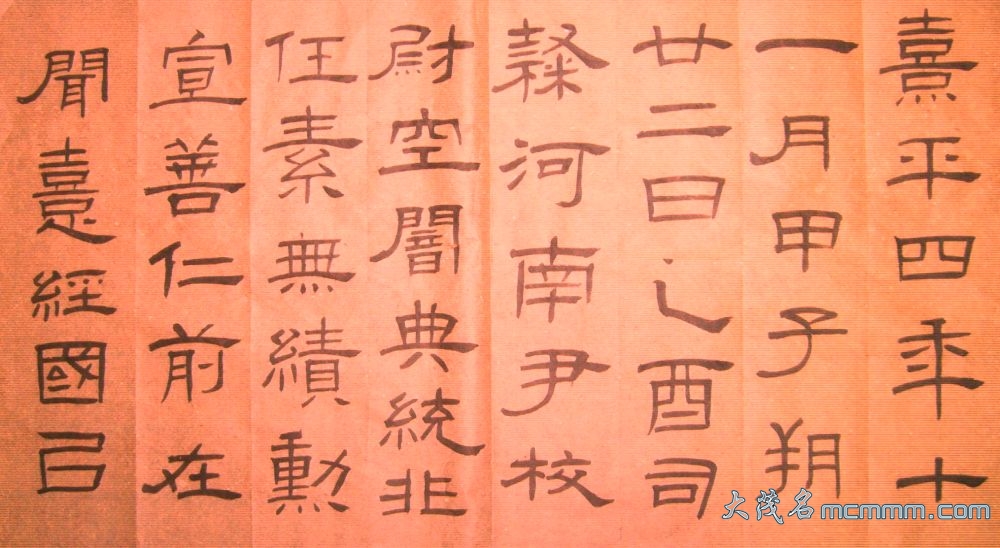 熹平四年十
一月甲子朔
廿二日乙酉司
隸河南尹校
尉空闇典統非
任素無績勳
宣善仁前在
聞憙經國㠯
大茂名mcmmm.com